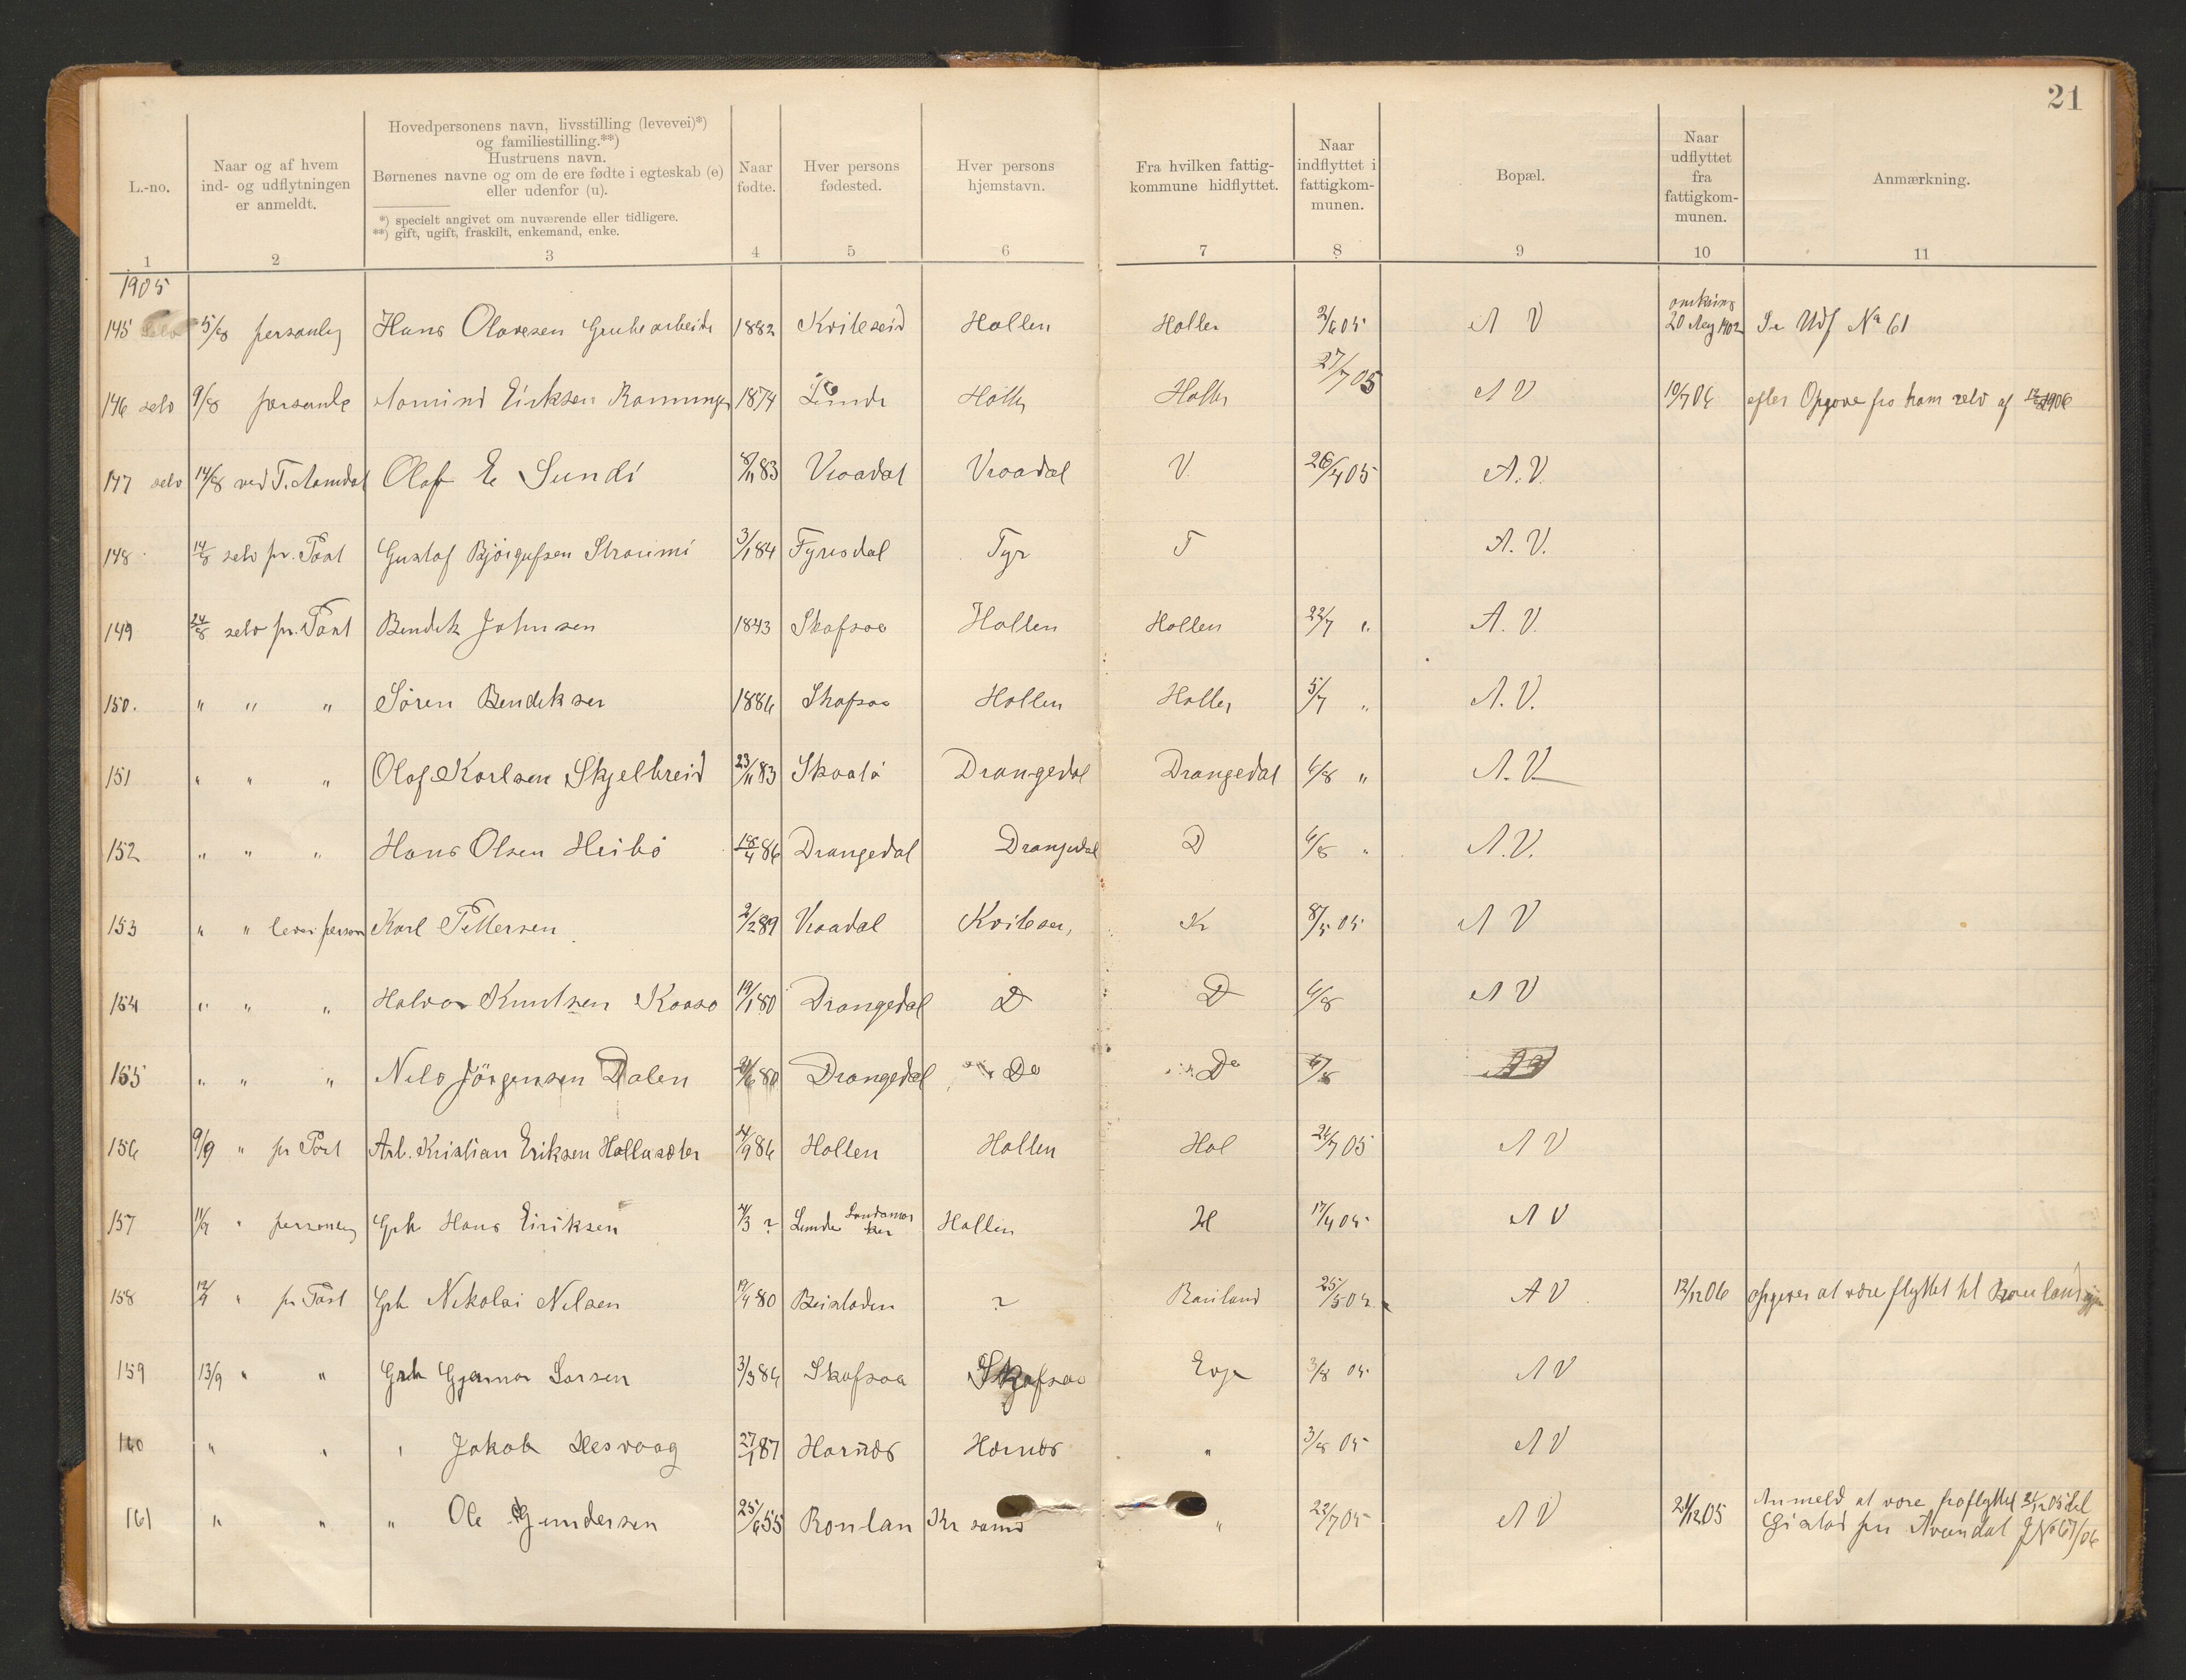 21
L.-no.
Naar og af hvem
ind- og udflytningen
er anmeldt.
Hovedpersonens navn, livsstilling (levevei)*)
og familiestilling.**)
Hustruens navn.
Børnenes navne og om de ere fødte i egteskab (e)
eller udenfor (u).
*) specielt angivet om nuværende eller tidligere.
**) gift, ugift, fraskilt, enkemand, enke.
Naar
fødte.
Hver persons
fødested.
Hver persons
hjemstavn.
Fra hvilken fattig-
kommune hidflyttet.
Naar
indflyttet i
fattigkom-
munen.
Bopæl.
Naar
udflyttet
fra
fattigkom-
munen.
Anmærkning.
1 2 3 4 5 6 7 8 9 10 11
1905
145 selv 5/8 personlig Hans Olavesen Grubearbeide 1882 Kviteseid Hollen Hollen 2/6 05 A V omkring 20 Aug 1902 Se Udf No 61
146 selv 9/8 personlig Aamund Eriksen Rønningen 1874 Lunde Hollen Hollen 27/7 05 A V 10/7 06 efter Opgave fra ham selv af 1906
147 selv 14/8 ved T. Aamdal Olaf E Sundi 8/11 83 Vraadal Vraadal V 26/4 05 A. V.
148 14/8 selv pr. Post Gustaf Bjørgufsen Straumi 3/1 84 Fyresdal Fyr F A. V.
149 24/8 selv pr. Post Bendik Johnsen 1843 Skafsaa Hollen Hollen 22/7 " A. V.
150. " " " Søren Bendiksen 1886 Skafsaa Hollen Hollen 5/7 " A. V.
151 " " " Olaf Karlsen Skjelbreid 23/11 83 Skaatø Drangedal Drangedal 6/8 " A. V.
152 " " " Hans Olsen Heibø 18/4 86 Drangedal Drangedal D 6/8 " A. V.
153 " " lever person Karl Pettersen 2/2 89 Vraadal Kvitesei, K 8/5 05 A V
154 " " " Halvor Knutsen Kaasa 19/1 80 Drangedal D D 6/8 A V
155 " " " Nils Jörgensen Dalen 80 Drangedal Do Do 6/8
156 9/9 " pr Post Arb. Kristian Eriksen Hollasæter 4/9 86 Hollen Hollen Hol 24/7 05 A V
157 11/9 " personlig Grb Hans Eiriksen 4/3 ? Lunde Hollen H 17/4 05 A V
158 12/9 " pr Post Grb Nikolai Nilsen 19/4 80 Beistaden ? Rauland 25/5 05 A V 12/12 06 opgives at være flyttet til Rauland igjen
159 13/9 " " Grb Gjermo Larsen 3/3 86 Skafsaa Skafsaa Evje 3/8 05 A V
160 " " " Jakob Hesvaag 27/1 87 Hornæs Hornæs " 3/8 05 A V
161 " " " Ole Gundersen 25/6 55 Roulan Kr sand " 22/7 05 A V 21/12 05 Anmeld at være fraflyttet 21/12 05 til
Gistad pr Arendal JNo 67/06